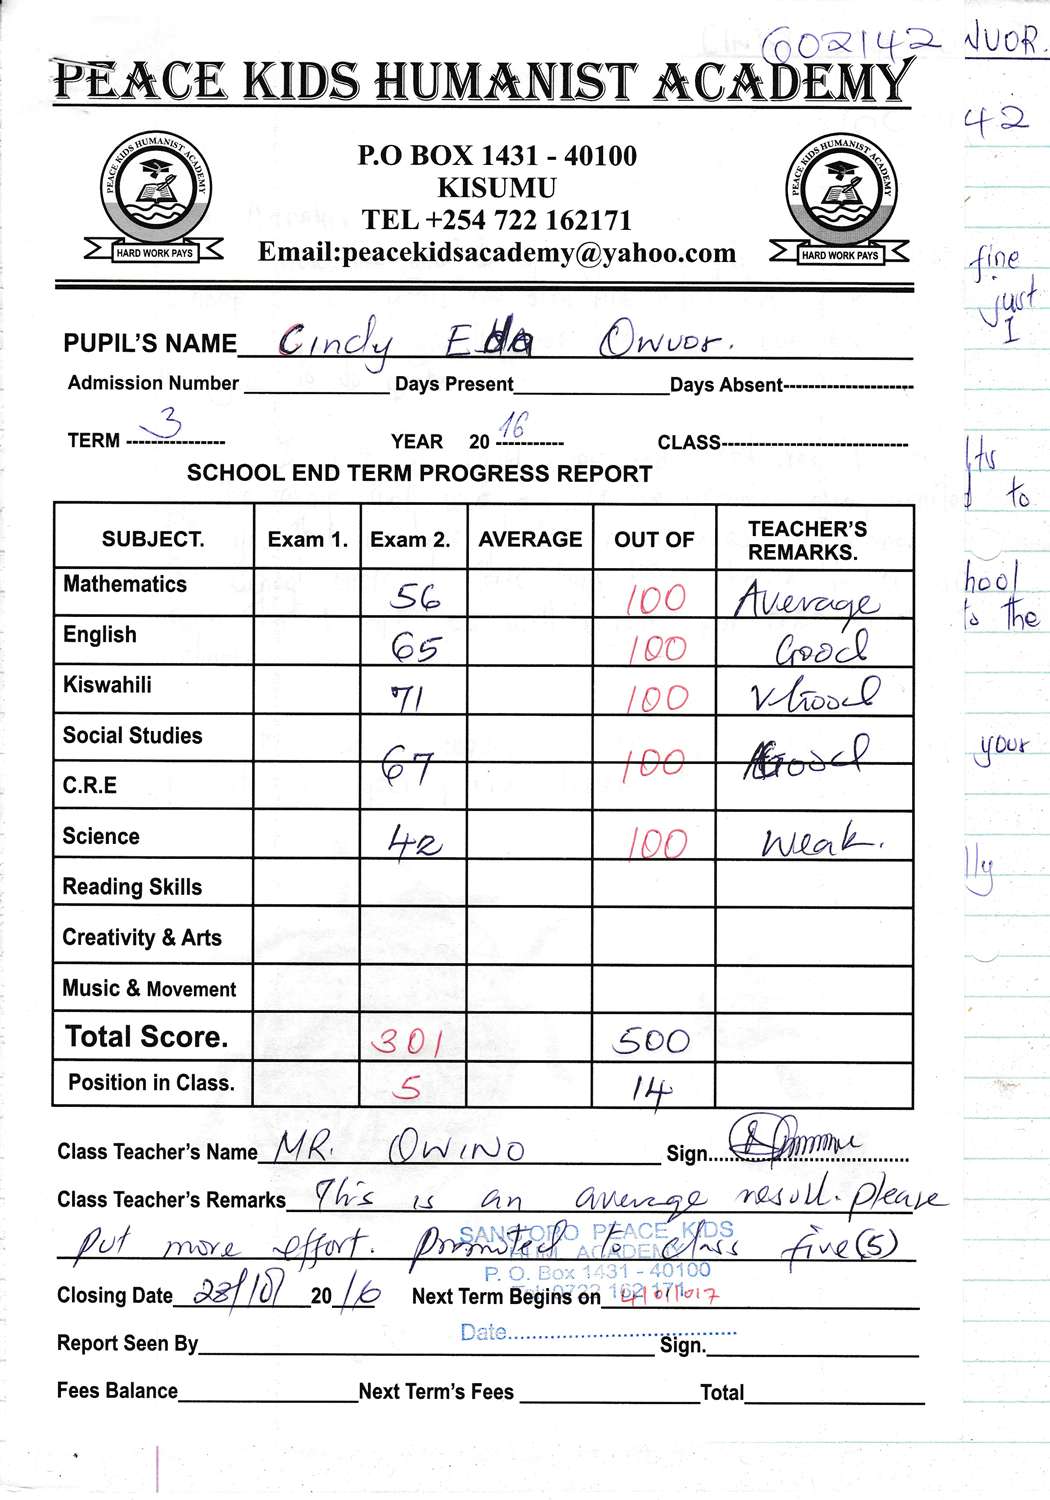 602142
PEACE KIDS HUMANIST ACADEMY
PEACE KIDS HUMANIST ACADEMY
HARD WORK PAYS
P.O BOX 1431 - 40100
KISUMU
TEL +254 722 162171
Email:peacekidsacademy@yahoo.com
PEACE KIDS HUMANIST ACADEMY
HARD WORK PAYS
PUPIL'S NAME Cindy Eda Owuor.
Admission Number Days Present Days Absent
TERM 3 YEAR 20 16 CLASS
SCHOOL END TERM PROGRESS REPORT
SUBJECT. Exam 1. Exam 2. AVERAGE OUT OF TEACHER'S REMARKS.
Mathematics 56 100 Average
English 65 100 Good
Kiswahili 71 100 V Good
Social Studies
67 100 Good
C.R.E
Science 42 100 Weak.
Reading Skills
Creativity & Arts
Music & Movement
Total Score. 301 500
Position in Class. 5 14
Class Teacher's Name MR. OWINO Sign.
Class Teacher's Remarks This is an average result. please
put more effort. Promoted to class five (5)
SANG'ORO PEACE KIDS
ACADEMY
P. O. Box 1431 - 40100
Tel: 0722 162 171
Date
Closing Date 28/10/ 20 16 Next Term Begins on 4/01/2017
Report Seen By Sign.
Fees Balance Next Term's Fees Total
NUOR.
42
fine
just
I
to
hool
the
your
lly